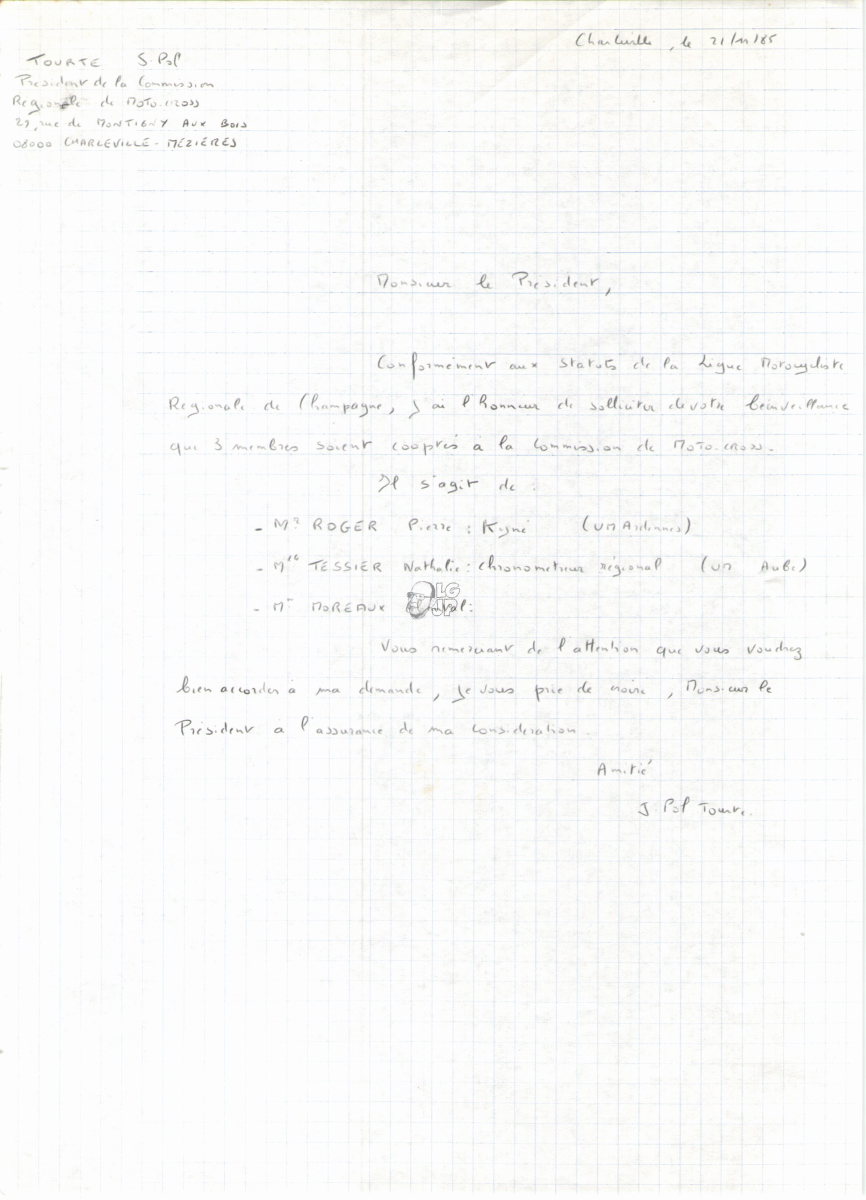 Charleville, le 21/11/85
TOURTE J. Pol
President de la Commission
Regionale de MOTO-CROSS
29, rue de MONTIGNY AUX BOIS
08000 CHARLEVILLE-MÉZIÈRES
Monsieur le Président,
Conformément aux statuts de la Ligue Motocycliste
Regionale de Champagne, j'ai l'honneur de solliciter de votre bienveillance
qui 3 membres soient cooptés à la Commission de MOTO-CROSS.
Il s'agit de :
- Mr ROGER Pierre : (UM Ardennes)
- Mlle TESSIER Nathalie : Chronometreur régional (UM Aube)
- Mr MOREAUX :
LG UP
Vous remerciant de l'attention que vous voudrez
bien accorder à ma demande, je vous prie de croire, Monsieur le
Président à l'assurance de ma consideration.
Amitié
J. Pol Tourte.